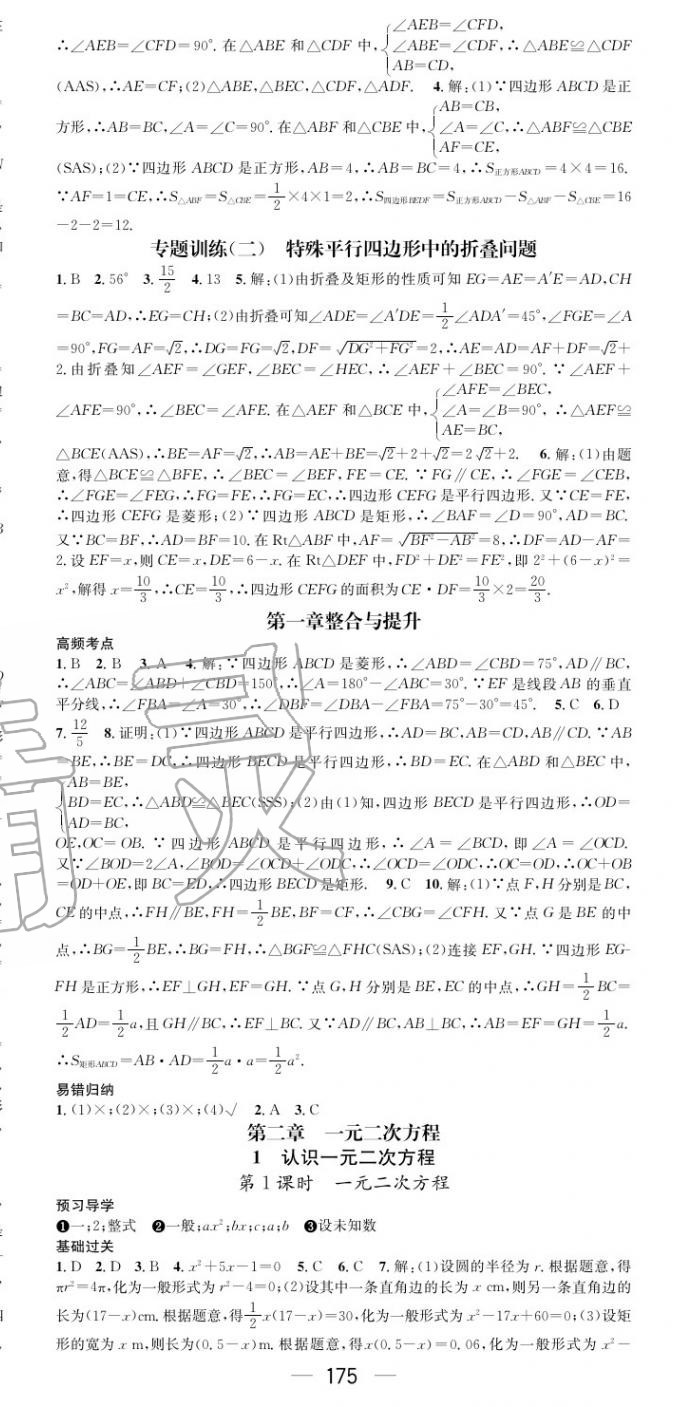 ∴∠AEB=∠CFD=90°. 在△ABE 和△CDF 中,{∠AEB=∠CFD, ∠ABE=∠CDF, AB=CD, ∴△ABE≌△CDF
(AAS),∴AE=CF;(2)△ABE,△BEC,△CDF,△ADF. 4. 解:(1)∵四边形 ABCD 是正
方形,∴AB=BC,∠A=∠C=90°. 在△ABF 和△CBE 中,{AB=CB, ∠A=∠C, AF=CE, ∴△ABF≌△CBE
(SAS);(2)∵四边形 ABCD 是正方形,AB=4,∴AB=BC=4,∴S正方形ABCD=4×4=16.
∵AF=1=CE,∴S△ABF=S△CBE=1/2×4×1=2,∴S四边形BEDF=S正方形ABCD−S△ABF−S△CBE=16
−2−2=12.
专题训练(二) 特殊平行四边形中的折叠问题
1. B 2. 56° 3. 15/2 4. 13 5. 解:(1)由折叠及矩形的性质可知 EG=AE=A′E=AD,CH
=BC=AD,∴EG=CH;(2)由折叠可知∠ADE=∠A′DE=1/2∠ADA′=45°,∠FGE=∠A
=90°,FG=AF=√2,∴DG=FG=√2,DF=√(DG²+FG²)=2,∴AE=AD=AF+DF=√2+
2. 由折叠知∠AEF=∠GEF,∠BEC=∠HEC,∴∠AEF+∠BEC=90°. ∵∠AEF+
∠AFE=90°,∴∠BEC=∠AFE. 在△AEF 和△BCE 中,{∠AFE=∠BEC, ∠A=∠B=90°, AE=BC, ∴△AEF≌
△BCE(AAS),∴BE=AF=√2,∴AB=AE+BE=√2+2+√2=2√2+2. 6. 解:(1)由题
意,得△BCE≌△BFE,∴∠BEC=∠BEF,FE=CE. ∵FG∥CE,∴∠FGE=∠CEB,
∴∠FGE=∠FEG,∴FG=FE,∴FG=EC,∴四边形 CEFG 是平行四边形. 又∵CE=FE,
∴四边形 CEFG 是菱形;(2)∵四边形 ABCD 是矩形,∴∠BAF=∠D=90°,AD=BC.
又∵BC=BF,∴AD=BF=10. 在 Rt△ABF 中,AF=√(BF²−AB²)=8,∴DF=AD−AF=
2. 设 EF=x,则 CE=x,DE=6−x. 在 Rt△DEF 中,FD²+DE²=FE²,即 2²+(6−x)²=
x²,解得 x=10/3,∴CE=10/3,∴四边形 CEFG 的面积为 CE·DF=10/3×2=20/3.
第一章整合与提升
高频考点
1. B 2. B 3. A 4. 解:∵四边形 ABCD 是菱形,∴∠ABD=∠CBD=75°,AD∥BC,
∴∠ABC=∠ABD+∠CBD=150°,∴∠A=180°−∠ABC=30°. ∵EF 是线段 AB 的垂直
平分线,∴∠FBA=∠A=30°,∴∠DBF=∠DBA−∠FBA=75°−30°=45°. 5. C 6. D
7. 12/5 8. 证明:(1)∵四边形 ABCD 是平行四边形,∴AD=BC,AB=CD,AB∥CD. ∵AB
=BE,∴BE=DC,∴四边形 BECD 是平行四边形,∴BD=EC. 在△ABD 和△BEC 中,
{AB=BE, BD=EC, AD=BC, ∴△ABD≌△BEC(SSS);(2)由(1)知,四边形 BECD 是平行四边形,∴OD=
OE,OC=OB. ∵四边形 ABCD 是平行四边形,∴∠A=∠BCD,即∠A=∠OCD.
又∵∠BOD=2∠A,∠BOD=∠OCD+∠ODC,∴∠OCD=∠ODC,∴OC=OD,∴OC+OB
=OD+OE,即 BC=ED,∴四边形 BECD 是矩形. 9. C 10. 解:(1)∵点 F,H 分别是 BC,
CE 的中点,∴FH∥BE,FH=1/2BE,BF=CF,∴∠CBG=∠CFH. 又∵点 G 是 BE 的中
点,∴BG=1/2BE,∴BG=FH,∴△BGF≌△FHC(SAS);(2)连接 EF,GH. ∵四边形 EG-
FH 是正方形,∴EF⊥GH,EF=GH. ∵点 G,H 分别是 BE,EC 的中点,∴GH=1/2BC=
1/2AD=1/2a,且 GH∥BC,∴EF⊥BC. 又∵AD∥BC,AB⊥BC,∴AB=EF=GH=1/2a.
∴S矩形ABCD=AB·AD=1/2a·a=1/2a².
易错归纳
1. (1)×;(2)×;(3)×;(4)√ 2. A 3. C
第二章 一元二次方程
1 认识一元二次方程
第 1 课时 一元二次方程
预习导学
❶一;2;整式 ❷一般;ax²;bx;c;a;b ❸设未知数
基础过关
1. D 2. D 3. B 4. x²+5x−1=0 5. C 6. C 7. 解:(1)设圆的半径为 r. 根据题意,得
πr²=4π,化为一般形式为 r²−4=0;(2)设其中一条直角边的长为 x cm,则另一条直角边的
长为(17−x)cm. 根据题意,得1/2x(17−x)=30,化为一般形式为 x²−17x+60=0;(3)设矩
形的宽为 x m,则长为(0.5−x)m. 根据题意,得 x(0.5−x)=0.06,化为一般形式为 x²−
— 175 —